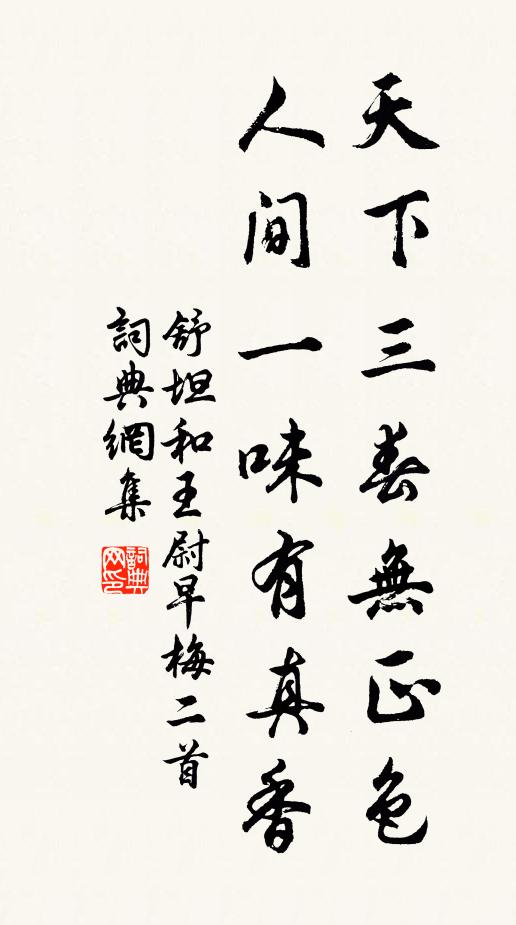 天下三春無正色
人间一味有真香
舒坦和王尉早梅二首
詞典網集
詞典网印